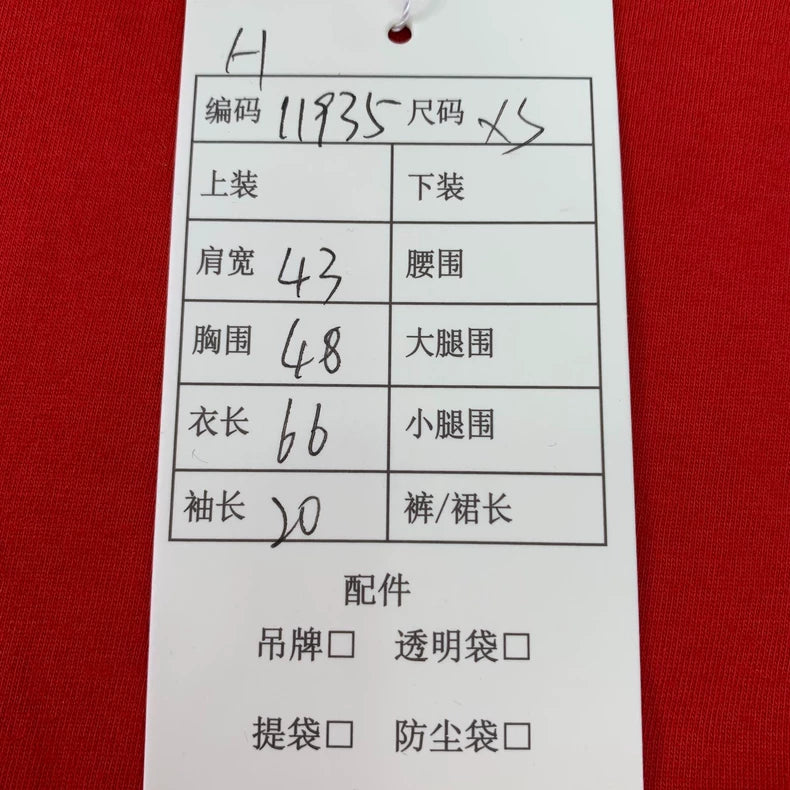 H
编码 11935 尺码 XS
上装 下装
肩宽 43 腰围
胸围 48 大腿围
衣长 66 小腿围
袖长 20 裤/裙长
配件
吊牌□ 透明袋□
提袋□ 防尘袋□